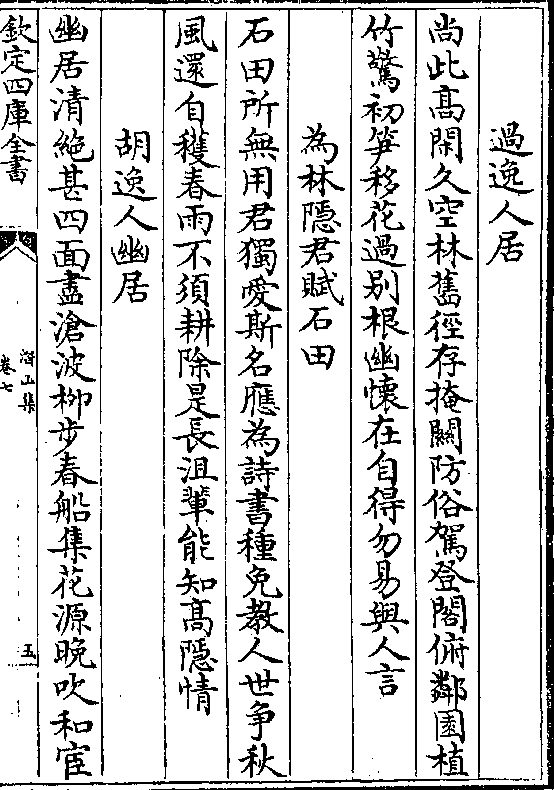 過逸人居
尚此髙閑久空林舊徑存掩關防俗駕登閣俯鄰園植
竹驚初笋移花過别根幽懷在自得勿易與人言
為林隠君賦石田
石田所無用君獨愛斯名應為詩書種免教人世争秋
風還自穫春雨不須耕除是長沮輩能知髙隠情
胡逸人幽居
幽居清絶甚四面盡滄波柳步春船集花源晚吹和宦
欽定四庫全書
潛山集
卷七
五